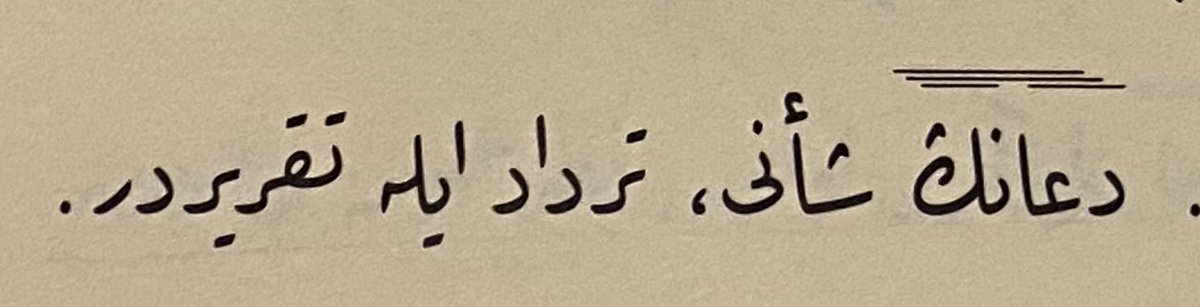 . دعانڭ شأنى، ترداد ايله تقريردر.